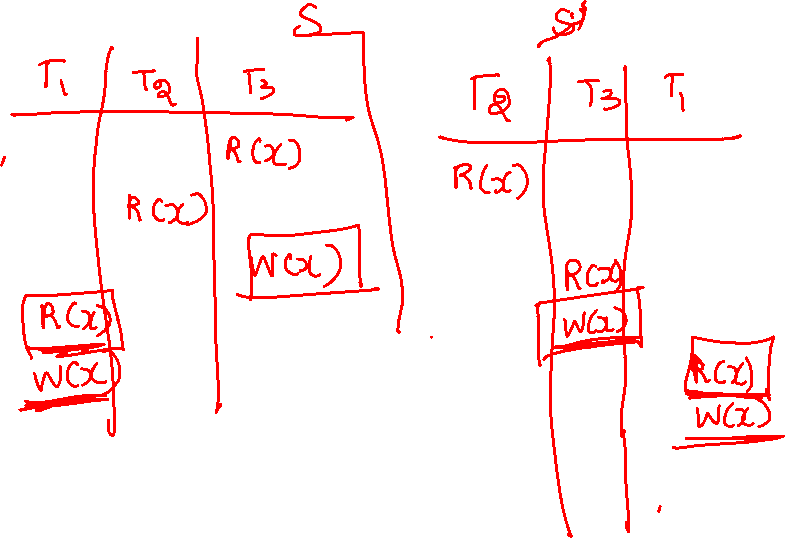 S
T1 T2 T3
R(x)
R(x)
W(x)
R(x)
W(x)
S'
T2 T3 T1
R(x)
R(x)
W(x)
R(x)
W(x)